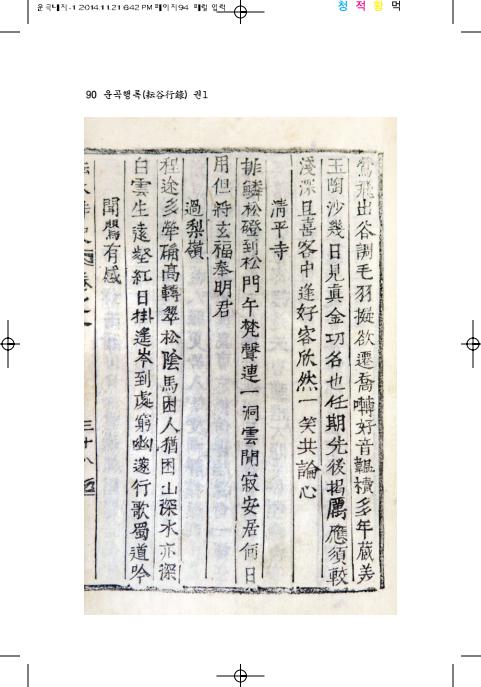 운곡내지-1 2014.11.21 6:42 PM 페이지94 매킬 입력
청 적 황 먹
90 운곡행록(耘谷行錄) 권1
鶯飛出谷調毛羽擬欲遷喬囀好音韞櫝多年蔵美
玉陶沙幾日見真金功名也任期先後揭厲應須較
淺深且喜客中逢好客欣然一笑共論心
清平寺
排鱗松磴到松門午梵聲連一洞雲閒寂安居何日
用但將玄福奉明君
過梨嶺
程途多犖确高轉翠松陰馬困人猶困山深水亦深
白雲生遠壑紅日掛遙岑到處窮幽邃行歌蜀道吟
聞鶯有感
三十八